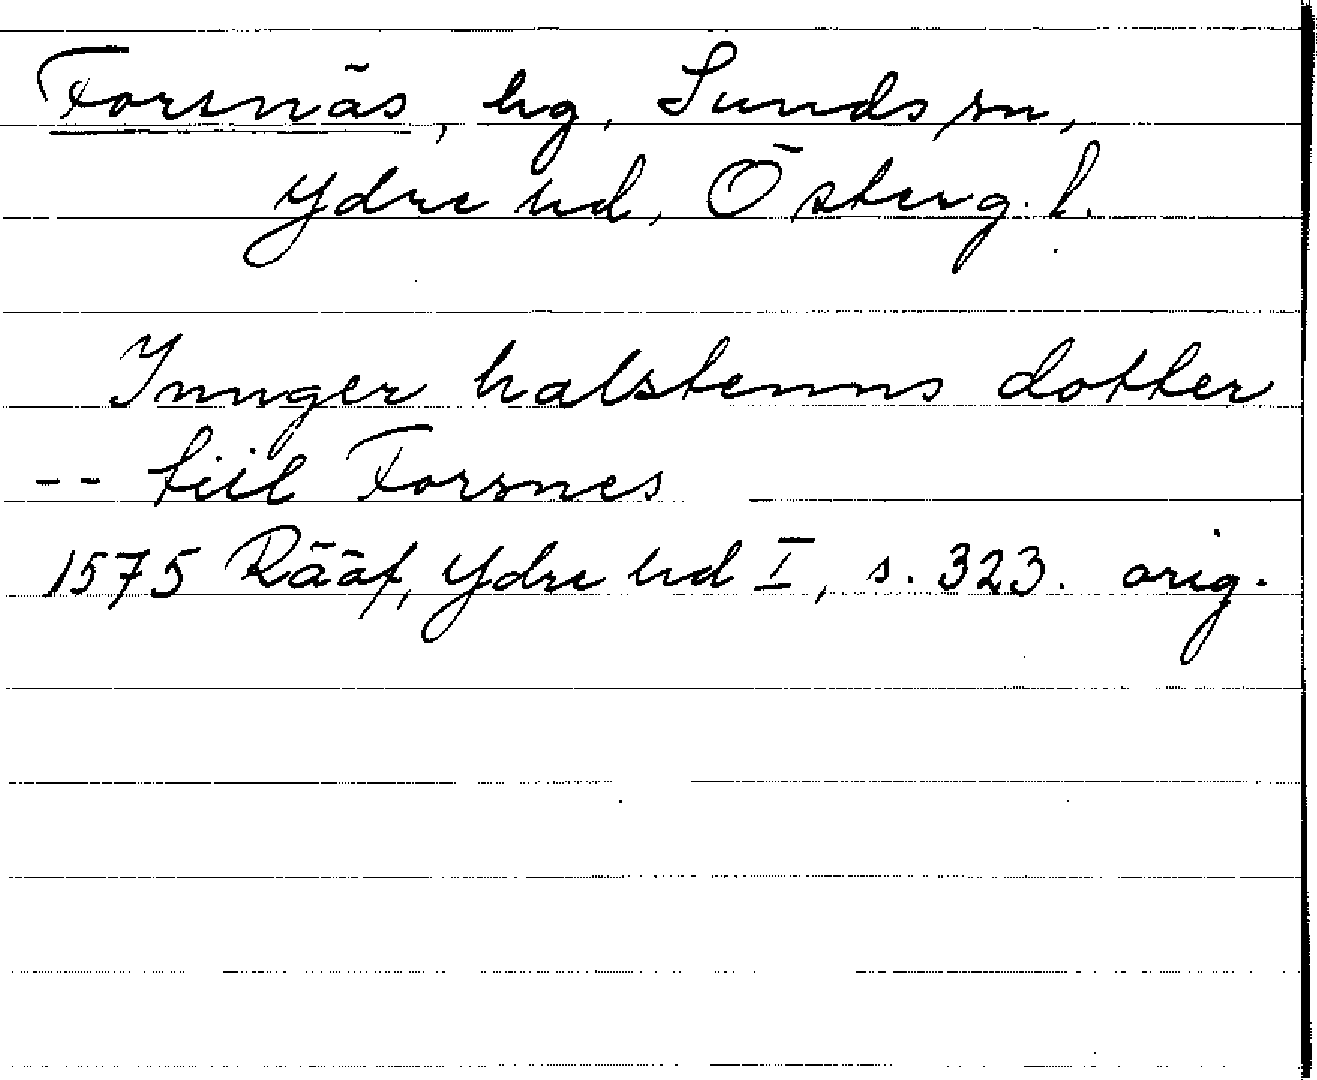 Forsnäs, hg, Sunds sn,
Ydre hd, Österg. l.
Innger halstenns dotter
-- tiil Forsnes
1575 Rääf, Ydre hd I, s. 323. orig.